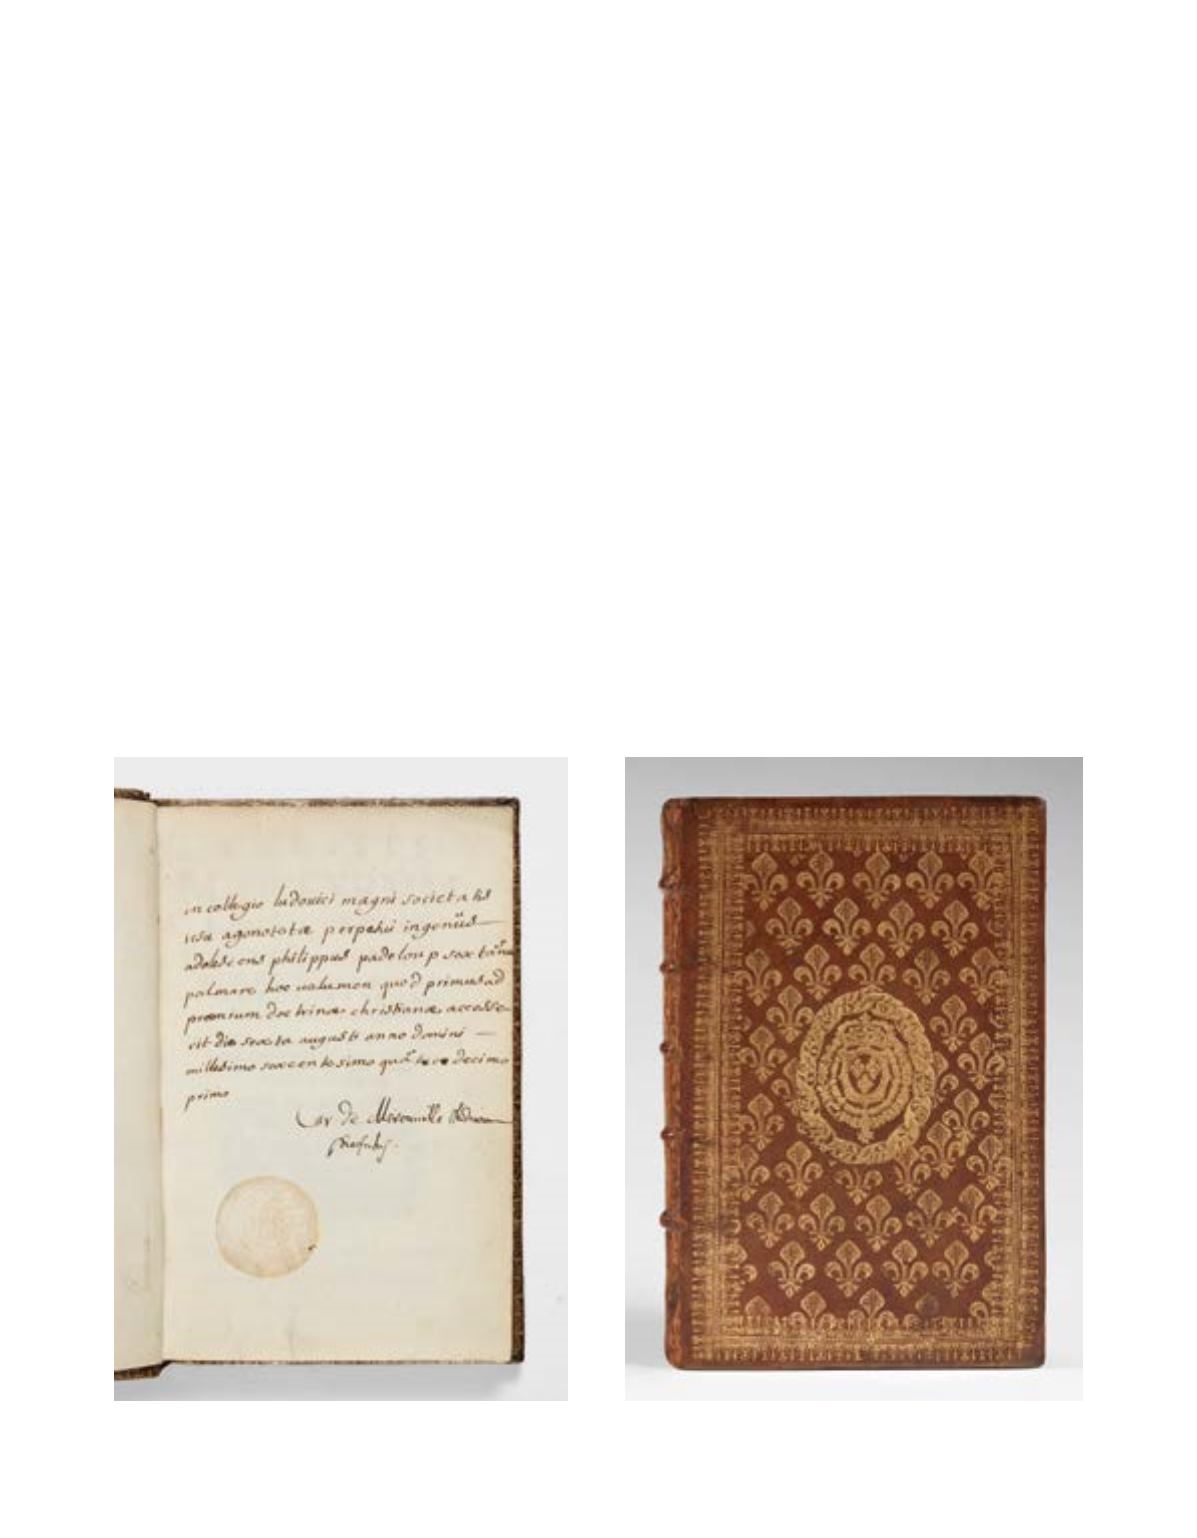 in collegio ludovici magni societatis
iesu agonotetæ perpetui ingenuus
adolescens philippus padeloup
palmare hoc volumen quod primus ad
præmium doctrinæ christianæ accesse-
rit die sexta augusti anno domini
millesimo sexcentesimo decimo
primo